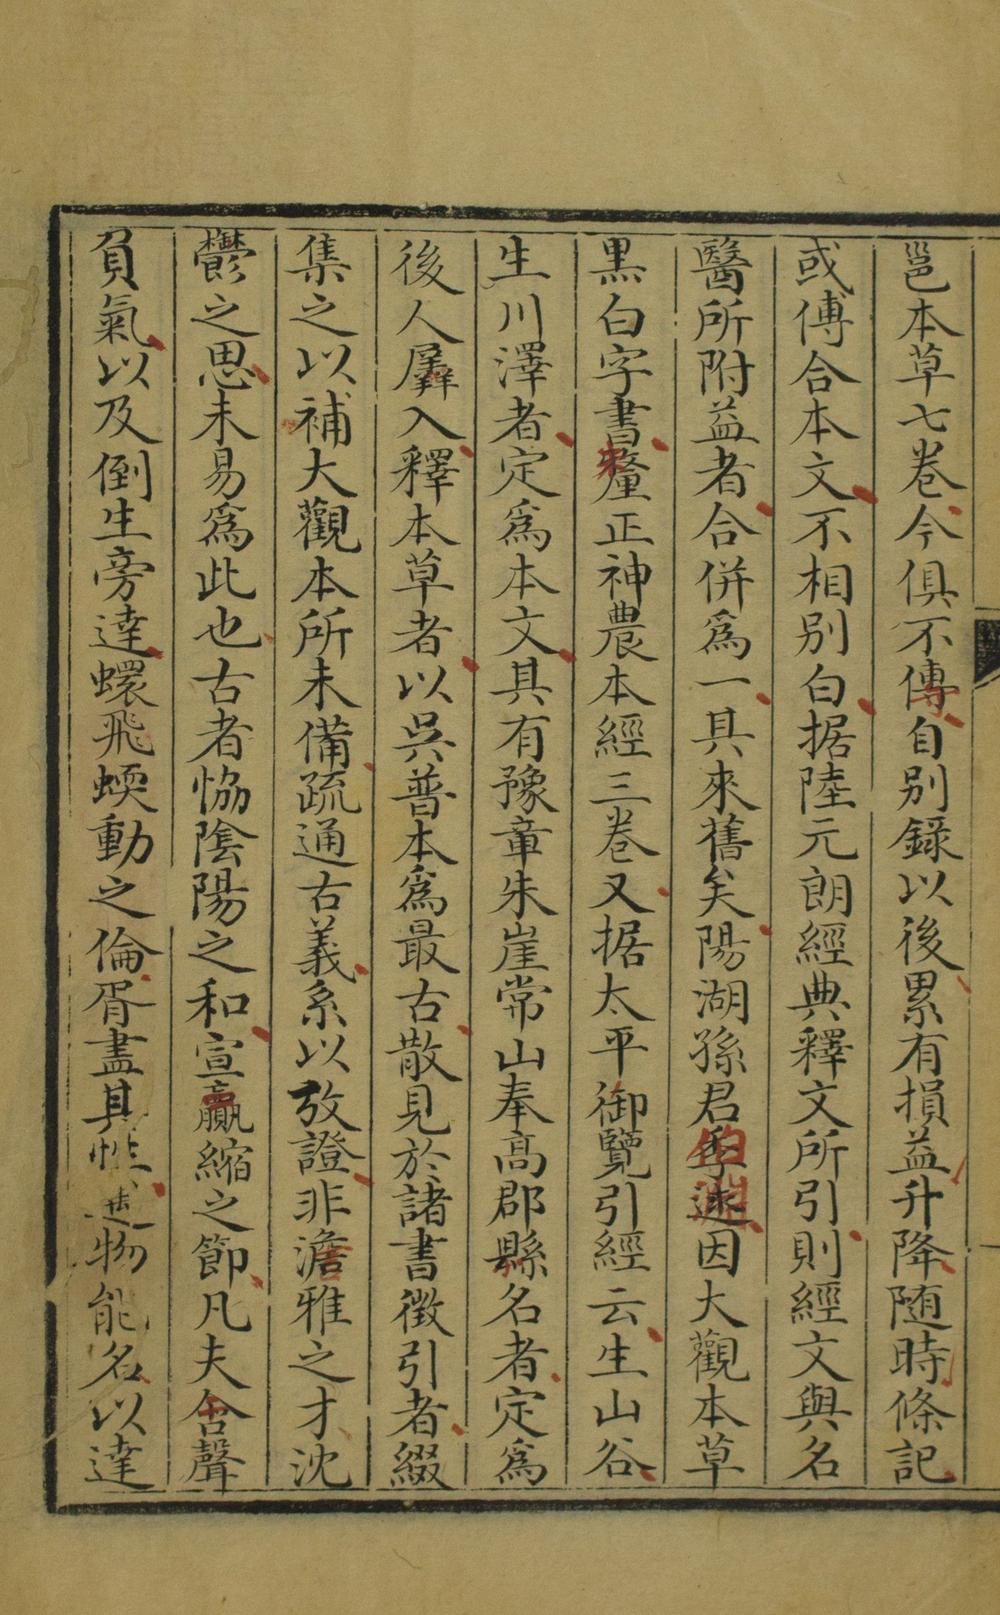 邕本草七卷今俱不傳自別錄以後累有損益升降隨時條記
或傅合本文不相別白据陸元朗經典釋文所引則經文與名
醫所附益者合併爲一其來舊矣陽湖孫君季逑因大觀本草
黑白字書釐正神農本經三卷又据太平御覽引經云生山谷
生川澤者定爲本文具有豫章朱崖常山奉高郡縣名者定爲
後人羼入釋本草者以吳普本爲最古散見於諸書徵引者綴
集之以補大觀本所未備疏通古義系以攷證非澹雅之才沈
鬱之思未易爲此也古者恊陰陽之和宣贏縮之節凡夫含聲
負氣以及倒生旁達蠉飛蝡動之倫胥盡其性遇物能名以達